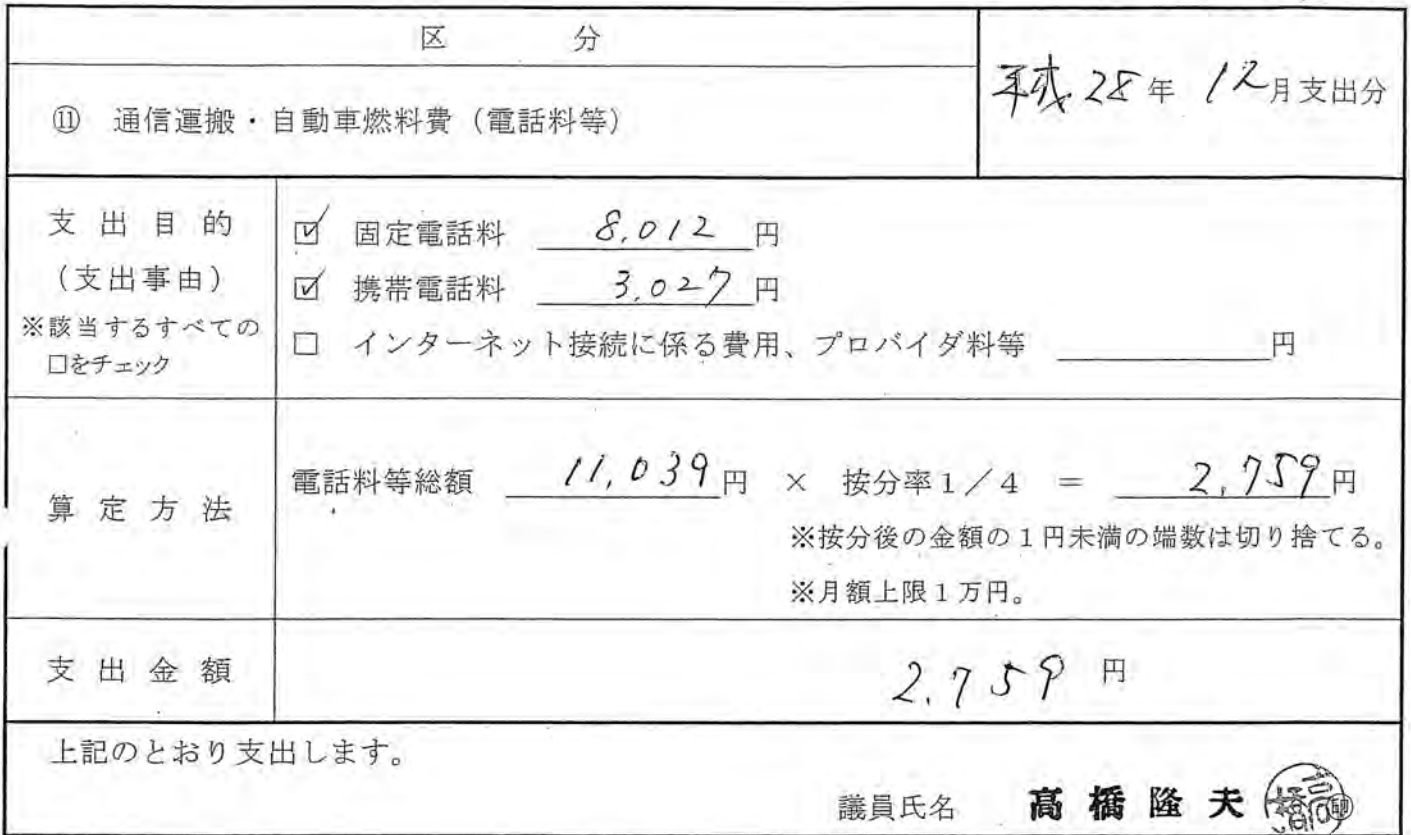 区 分
平成28年 12月支出分
⑪ 通信運搬・自動車燃料費（電話料等）
支出目的
（支出事由）
※該当するすべての
□をチェック
☑ 固定電話料 8,012 円
☑ 携帯電話料 3,027 円
□ インターネット接続に係る費用、プロバイダ料等 円
算定方法
電話料等総額 11,039円 × 按分率1／4 = 2,759円
※按分後の金額の1円未満の端数は切り捨てる。
※月額上限1万円。
支出金額
2,759 円
上記のとおり支出します。
議員氏名 髙橋隆夫 ㊞